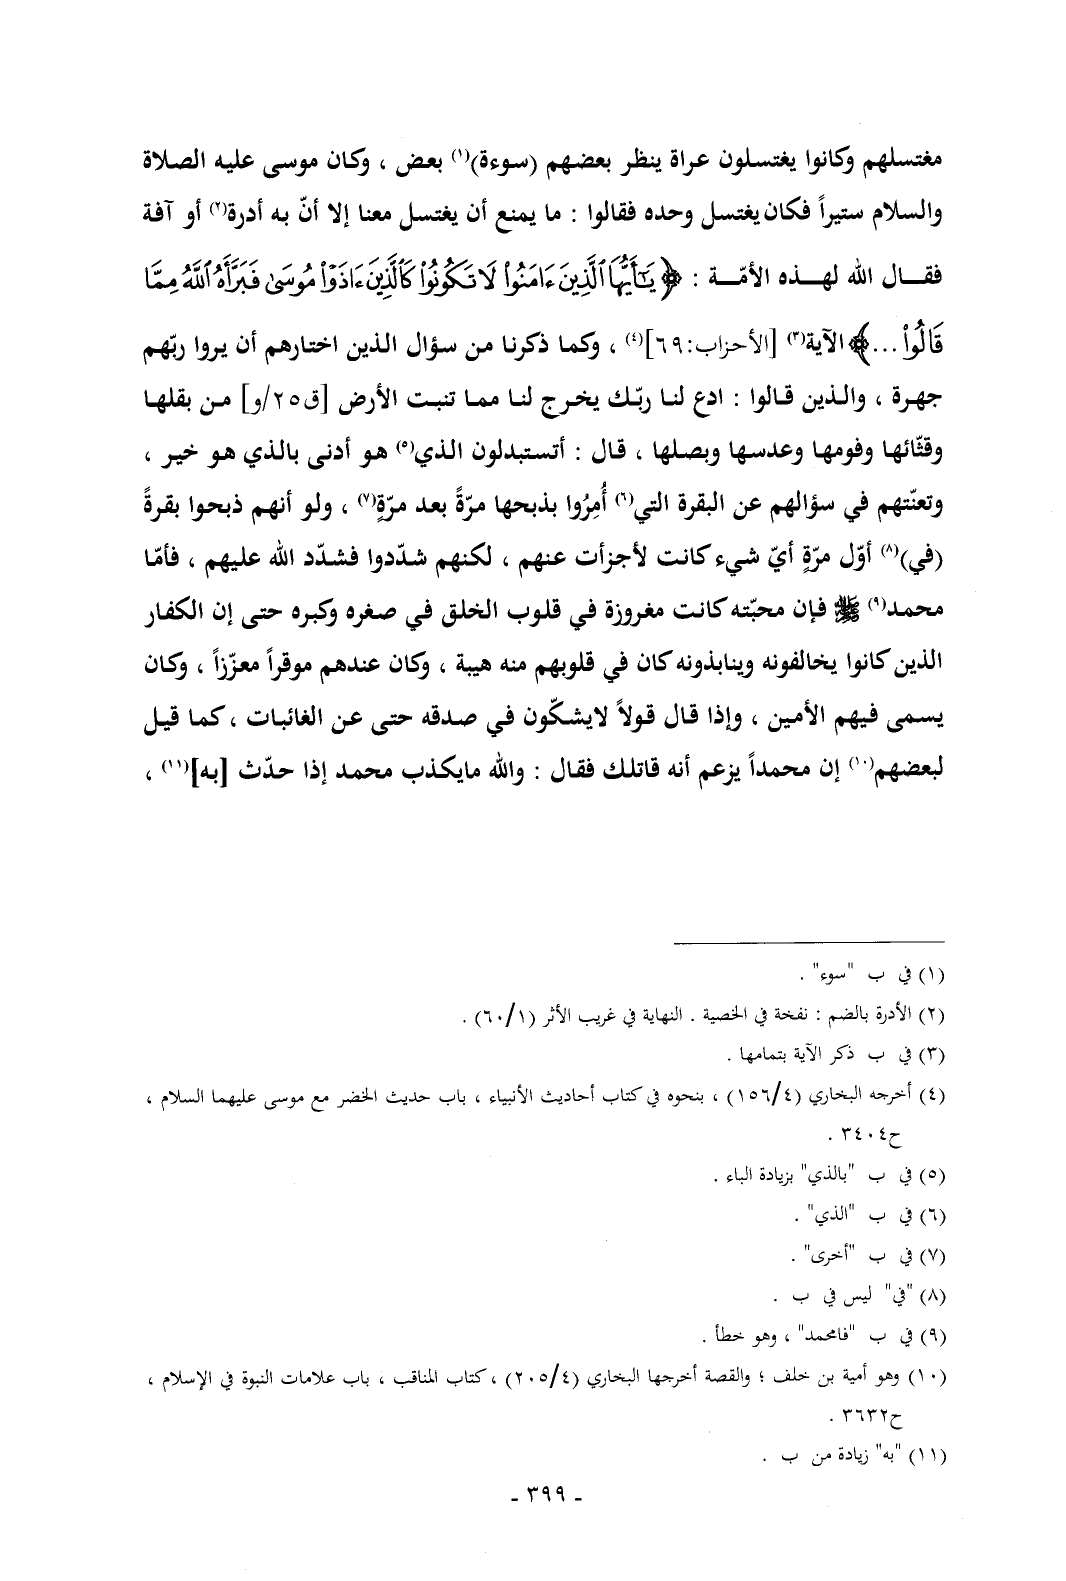 مغتسلهم وكانوا يغتسلون عراة ينظر بعضهم (سوءة)(١) بعض ، وكان موسى عليه الصلاة
والسلام ستيراً فكان يغتسل وحده فقالوا : ما يمنع أن يغتسل معنا إلا أنّ به أدرة(٢) أو آفة
فقــال الله لهــذه الأمّــة : ﴿يَٰٓأَيُّهَا ٱلَّذِينَ ءَامَنُوا۟ لَا تَكُونُوا۟ كَٱلَّذِينَ ءَاذَوْا۟ مُوسَىٰ فَبَرَّأَهُ ٱللَّهُ مِمَّا
قَالُوا۟ ...﴾ الآية(٣) [الأحزاب:٦٩](٤) ، وكما ذكرنا من سؤال الذين اختارهم أن يروا ربّهم
جهرة ، والذين قالوا : ادع لنا ربّك يخرج لنا مما تنبت الأرض [ق٢٥/و] من بقلها
وقثّائها وفومها وعدسها وبصلها ، قال : أتستبدلون الذي(٥) هو أدنى بالذي هو خير ،
وتعنّتهم في سؤالهم عن البقرة التي(٦) أُمِرُوا بذبحها مرّةً بعد مرّةٍ(٧) ، ولو أنهم ذبحوا بقرةً
(في)(٨) أوّل مرّةٍ أيّ شيء كانت لأجزأت عنهم ، لكنهم شدّدوا فشدّد الله عليهم ، فأمّا
محمد(٩) ﷺ فإن محبّته كانت مغروزة في قلوب الخلق في صغره وكبره حتى إن الكفار
الذين كانوا يخالفونه وينابذونه كان في قلوبهم منه هيبة ، وكان عندهم موقراً معزّزاً ، وكان
يسمى فيهم الأمين ، وإذا قال قولاً لايشكّون في صدقه حتى عن الغائبات ، كما قيل
لبعضهم(١٠) إن محمداً يزعم أنه قاتلك فقال : والله مايكذب محمد إذا حدّث [به](١١) ،
(١) في ب "سوء" .
(٢) الأدرة بالضم : نفخة في الخصية . النهاية في غريب الأثر (٦٠/١) .
(٣) في ب ذكر الآية بتمامها .
(٤) أخرجه البخاري (١٥٦/٤) ، بنحوه في كتاب أحاديث الأنبياء ، باب حديث الخضر مع موسى عليهما السلام ،
ح٣٤٠٤ .
(٥) في ب "بالذي" بزيادة الباء .
(٦) في ب "الذي" .
(٧) في ب "أخرى" .
(٨) "في" ليس في ب .
(٩) في ب "فامحمد" ، وهو خطأ .
(١٠) وهو أمية بن خلف ؛ والقصة أخرجها البخاري (٢٠٥/٤) ، كتاب المناقب ، باب علامات النبوة في الإسلام ،
ح٣٦٣٢ .
(١١) "به" زيادة من ب .
- ٣٩٩ -